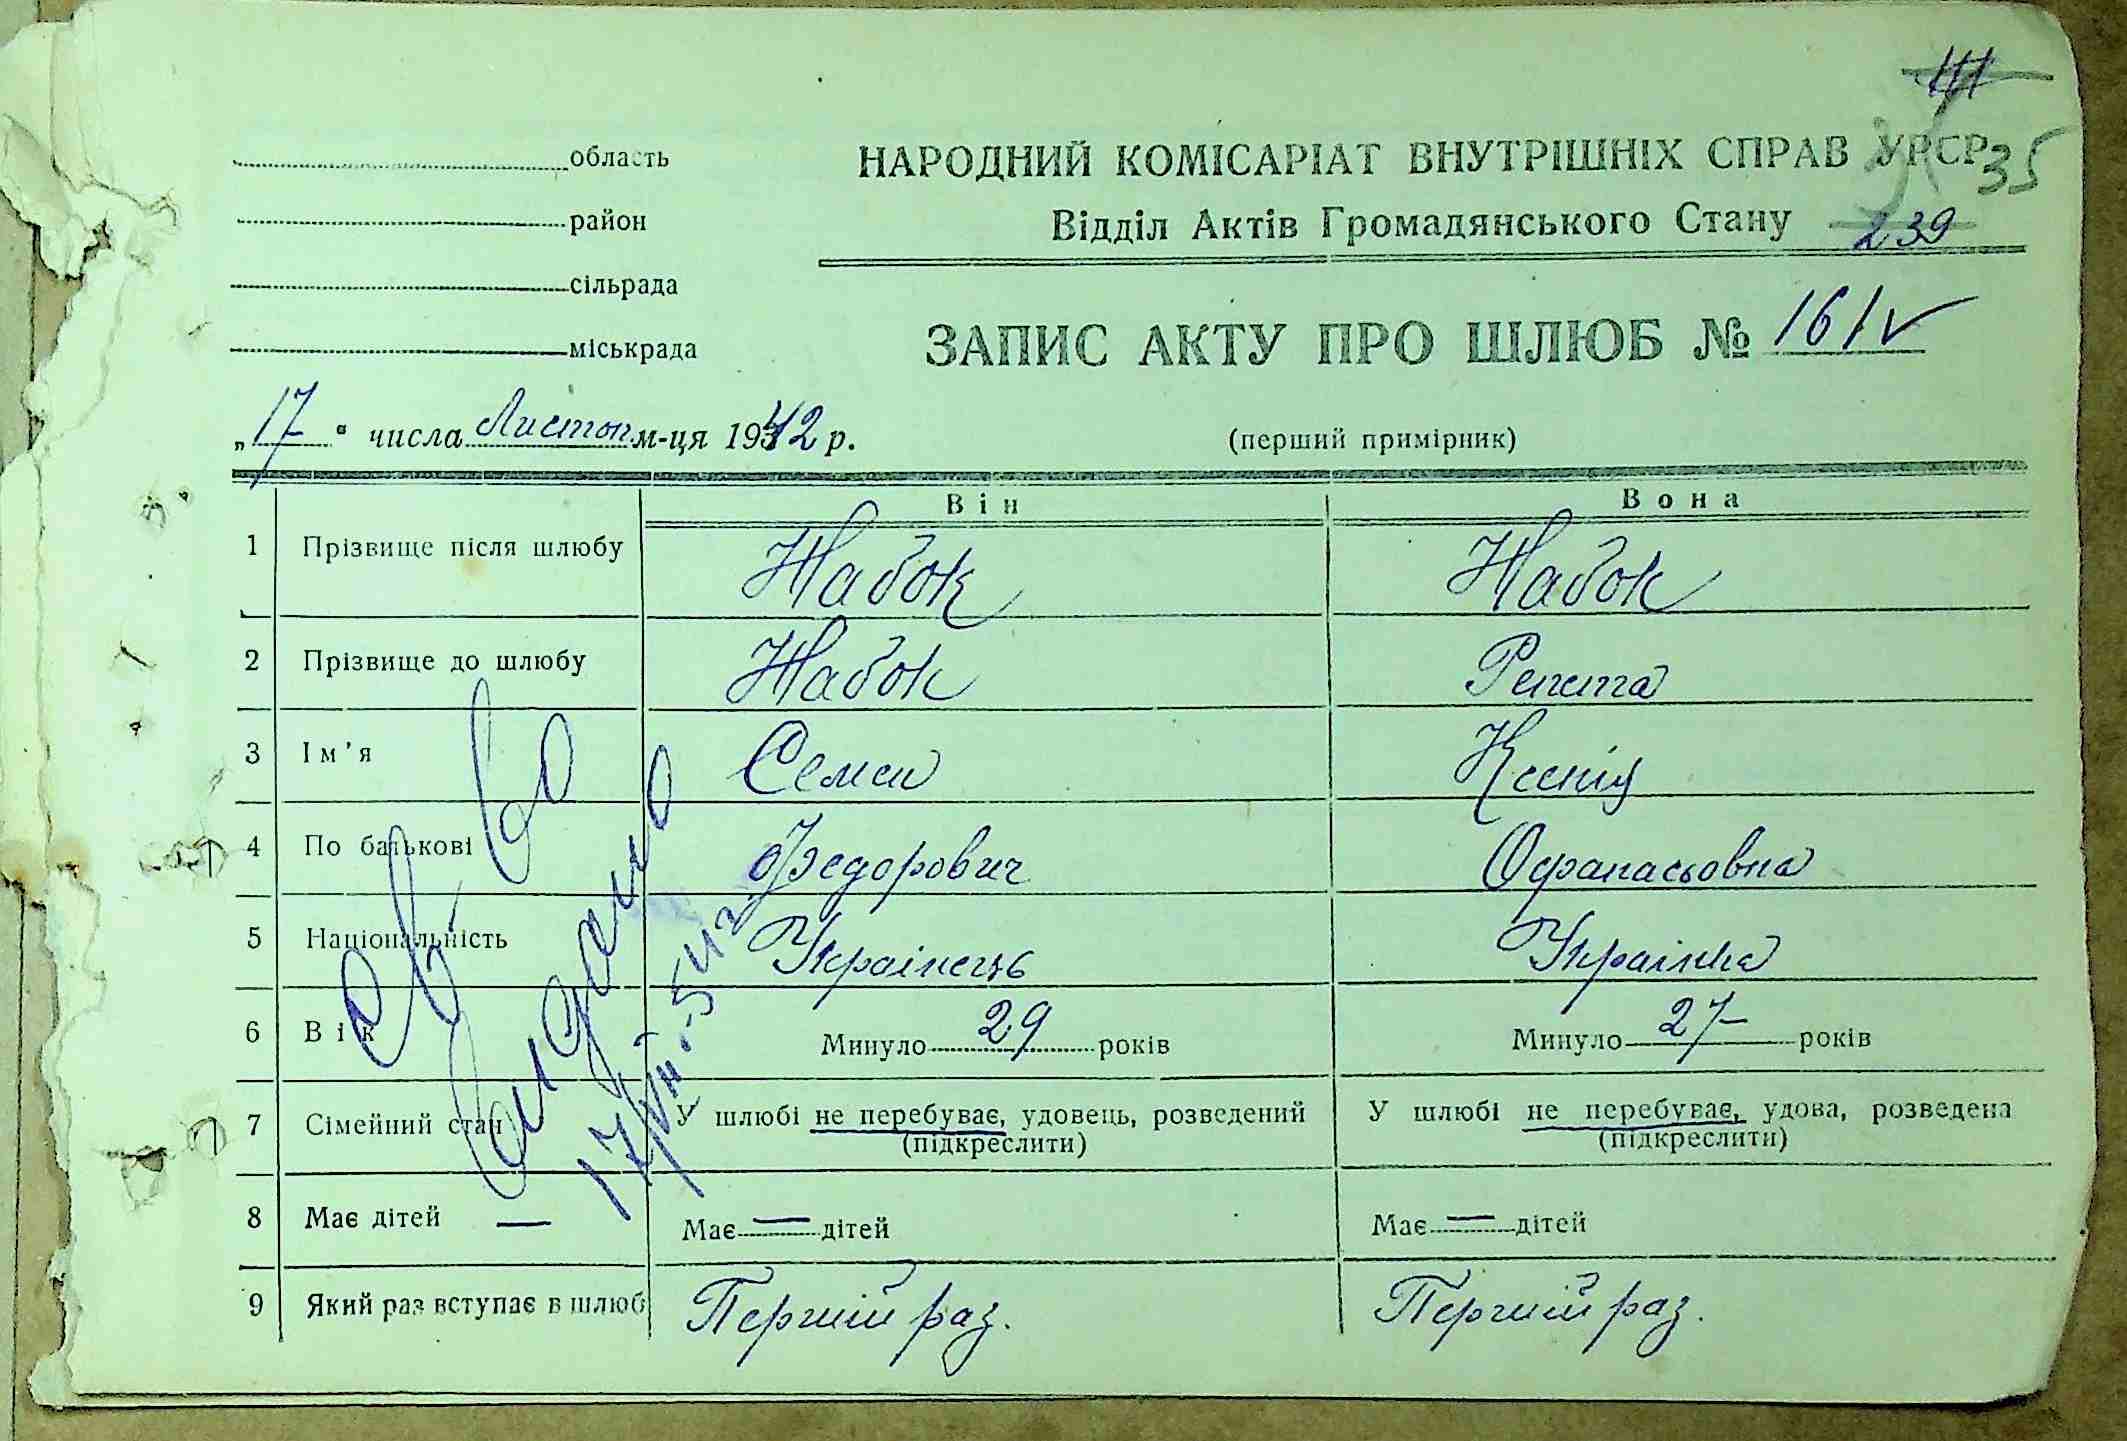 111
35
область
НАРОДНИЙ КОМІСАРІАТ ВНУТРІШНІХ СПРАВ УРСР
район
Відділ Актів Громадянського Стану 239
сільрада
ЗАПИС АКТУ ПРО ШЛЮБ № 161
міськрада
„17“ числа Листоп м-ця 1942 р.
(перший примірник)
Він Вона
1 Прізвище після шлюбу Набок Набок
2 Прізвище до шлюбу Набок Репета
3 Ім'я Семен Ксенія
4 По батькові Федорович Офанасьовна
5 Національність Українець Українка
6 Вік Минуло 29 років Минуло 27 років
7 Сімейний стан У шлюбі не перебуває, удовець, розведений У шлюбі не перебуває, удова, розведена
(підкреслити) (підкреслити)
8 Має дітей — Має — дітей Має — дітей
9 Який раз вступає в шлюб Перший раз. Перший раз.
Св-во
выдано
17/VII-54 г.